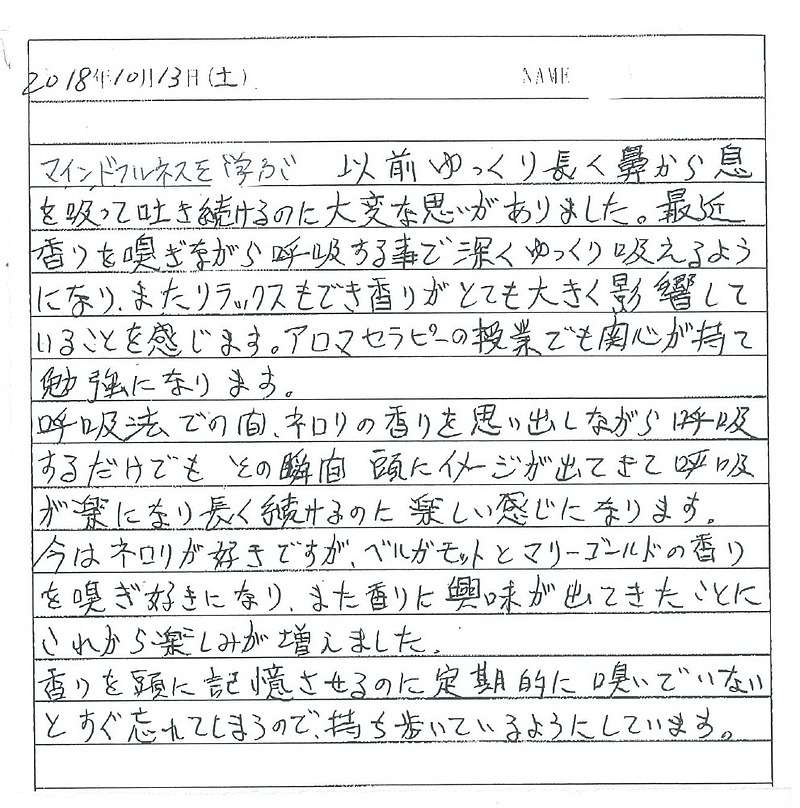 2018年10月13日(土) NAME
マインドフルネスを学ぶ 以前ゆっくり長く鼻から息
を吸って吐き続けるのに大変な思いがありました。最近
香りを嗅ぎながら呼吸する事で深くゆっくり吸えるよう
になり、またリラックスもでき香りがとても大きく影響して
いることを感じます。アロマセラピーの授業でも関心が持て
勉強になります。
呼吸法での間、ネロリの香りを思い出しながら呼吸
するだけでも その瞬間 頭にイメージが出てきて呼吸
が楽になり長く続けるのに楽しい感じになります。
今はネロリが好きですが、ベルガモットとマリーゴールドの香り
を嗅ぎ好きになり、また香りに興味が出てきたことに
これから楽しみが増えました。
香りを頭に記憶させるのに定期的に嗅いでいない
とすぐ忘れてしまうので、持ち歩いているようにしています。